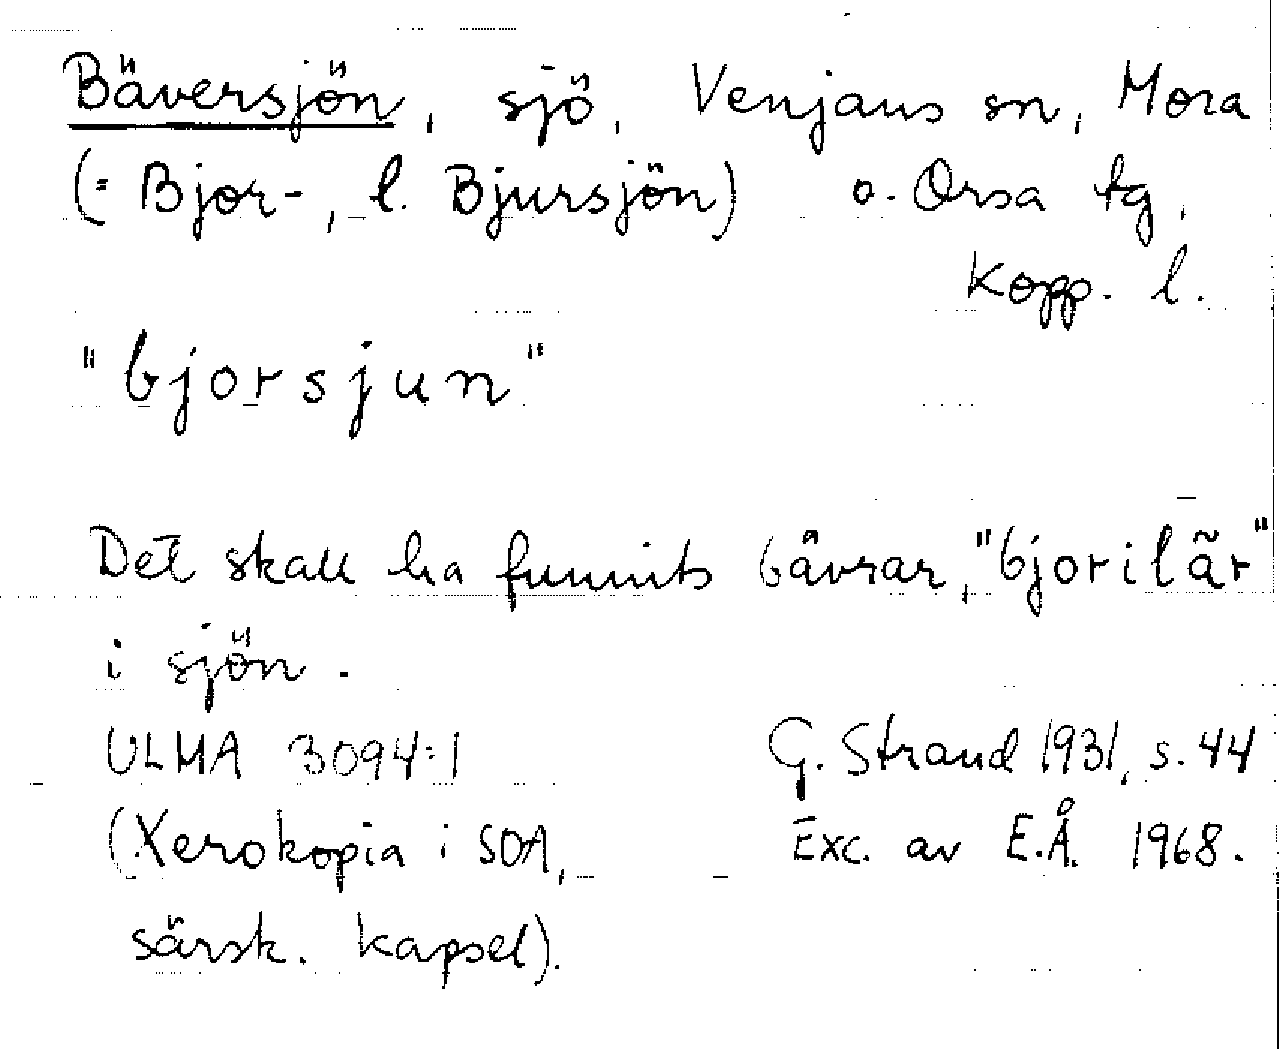 Bäversjön, sjö, Venjans sn, Mora
(= Bjor-, l. Bjursjön) o. Orsa tg,
Kopp. l.
"bjorsjun"
Det skall ha funnits bävrar, "bjorilär"
i sjön.
ULMA 3094:1 G. Strand 1931, s. 44
(Xerokopia i SOA, Exc. av E.Å. 1968.
särsk. kapsel).